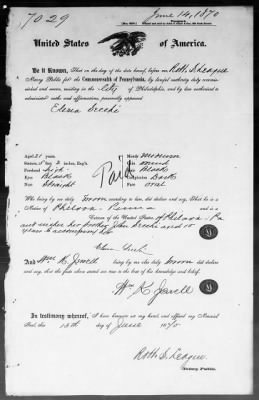 7029
June 14, 1870
United States of America.
Be it Known, That on the day of the date hereof, before me Robt. S. League
Notary Public for the Commonwealth of Pennsylvania, by lawful authority duly commissioned
and sworn, residing in the City of Philadelphia, and by law authorized to
administer oaths and affirmations, personally appeared
Secchi
Aged 21 years
Stature 5 Eng'h
Forehead high
Black
Nose Straight
Paid
Mouth medium
Chin round
Hair Black
Complexion Dark
Face oval
Who being by me duly sworn to law, did declare and say, That he is a
Native of Philada. Penna. and is a
Citizen of the United States of Philada. Pa
and wishes her brother John Secchi aged 10
years to accompany her
And Wm. K. Jewell being by me also duly sworn did declare
and say, that the facts above stated are true to the best of his knowledge and belief.
Wm K Jewell
In testimony whereof, I have hereunto set my hand and affixed my Notarial
Seal, this 13th day of June 1870
Robt. S. League.
Notary Public.